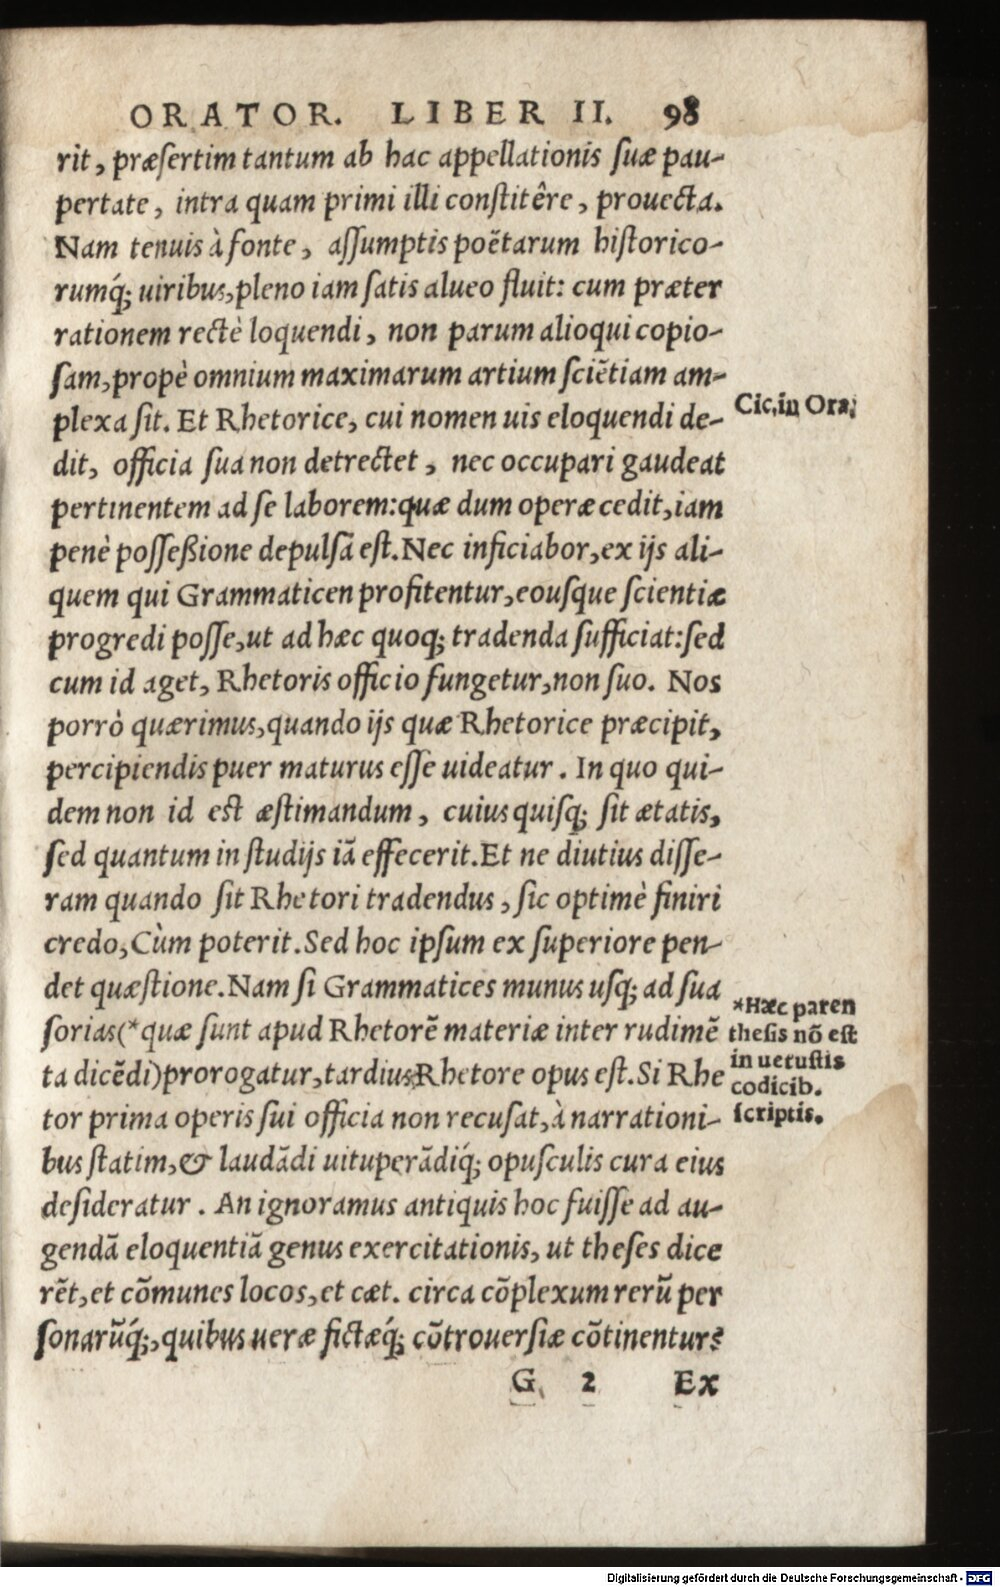 ORATOR. LIBER II. 98
rit, præsertim tantum ab hac appellationis suæ pau-
pertate, intra quam primi illi constitêre, prouecta.
Nam tenuis à fonte, assumptis poëtarum historico-
rumq́; uiribus, pleno iam satis alueo fluit: cum præter
rationem rectè loquendi, non parum alioqui copio-
sam, propè omnium maximarum artium sciẽtiam am-
plexa sit. Et Rhetorice, cui nomen uis eloquendi de-
Cic. in Ora.
dit, officia sua non detrectet, nec occupari gaudeat
pertinentem ad se laborem: quæ dum operæ cedit, iam
penè possessione depulsã est. Nec inficiabor, ex ijs ali-
quem qui Grammaticen profitentur, eousque scientiæ
progredi posse, ut ad hæc quoq; tradenda sufficiat: sed
cum id aget, Rhetoris officio fungetur, non suo. Nos
porrò quærimus, quando ijs quæ Rhetorice præcipit,
percipiendis puer maturus esse uideatur. In quo qui-
dem non id est æstimandum, cuius quisq; sit ætatis,
sed quantum in studijs iã effecerit. Et ne diutius disse-
ram quando sit Rhetori tradendus, sic optimè finiri
credo, Cùm poterit. Sed hoc ipsum ex superiore pen-
det quæstione. Nam si Grammatices munus usq; ad sua
sorias(*quæ sunt apud Rhetorẽ materiæ inter rudimẽ
ta dicẽdi)prorogatur, tardius Rhetore opus est. Si Rhe
tor prima operis sui officia non recusat, à narrationi-
*Hæc paren
thesis nõ est
in uetustis
codicib.
scriptis.
bus statim, & laudãdi uituperãdiq́; opusculis cura eius
desideratur. An ignoramus antiquis hoc fuisse ad au-
gendã eloquentiã genus exercitationis, ut theses dice
rẽt, et cõmunes locos, et cæt. circa cõplexum rerũ per
sonarũq́;, quibus ueræ fictæq́; cõtrouersiæ cõtinentur?
G 2 Ex
Digitalisierung gefördert durch die Deutsche Forschungsgemeinschaft - DFG